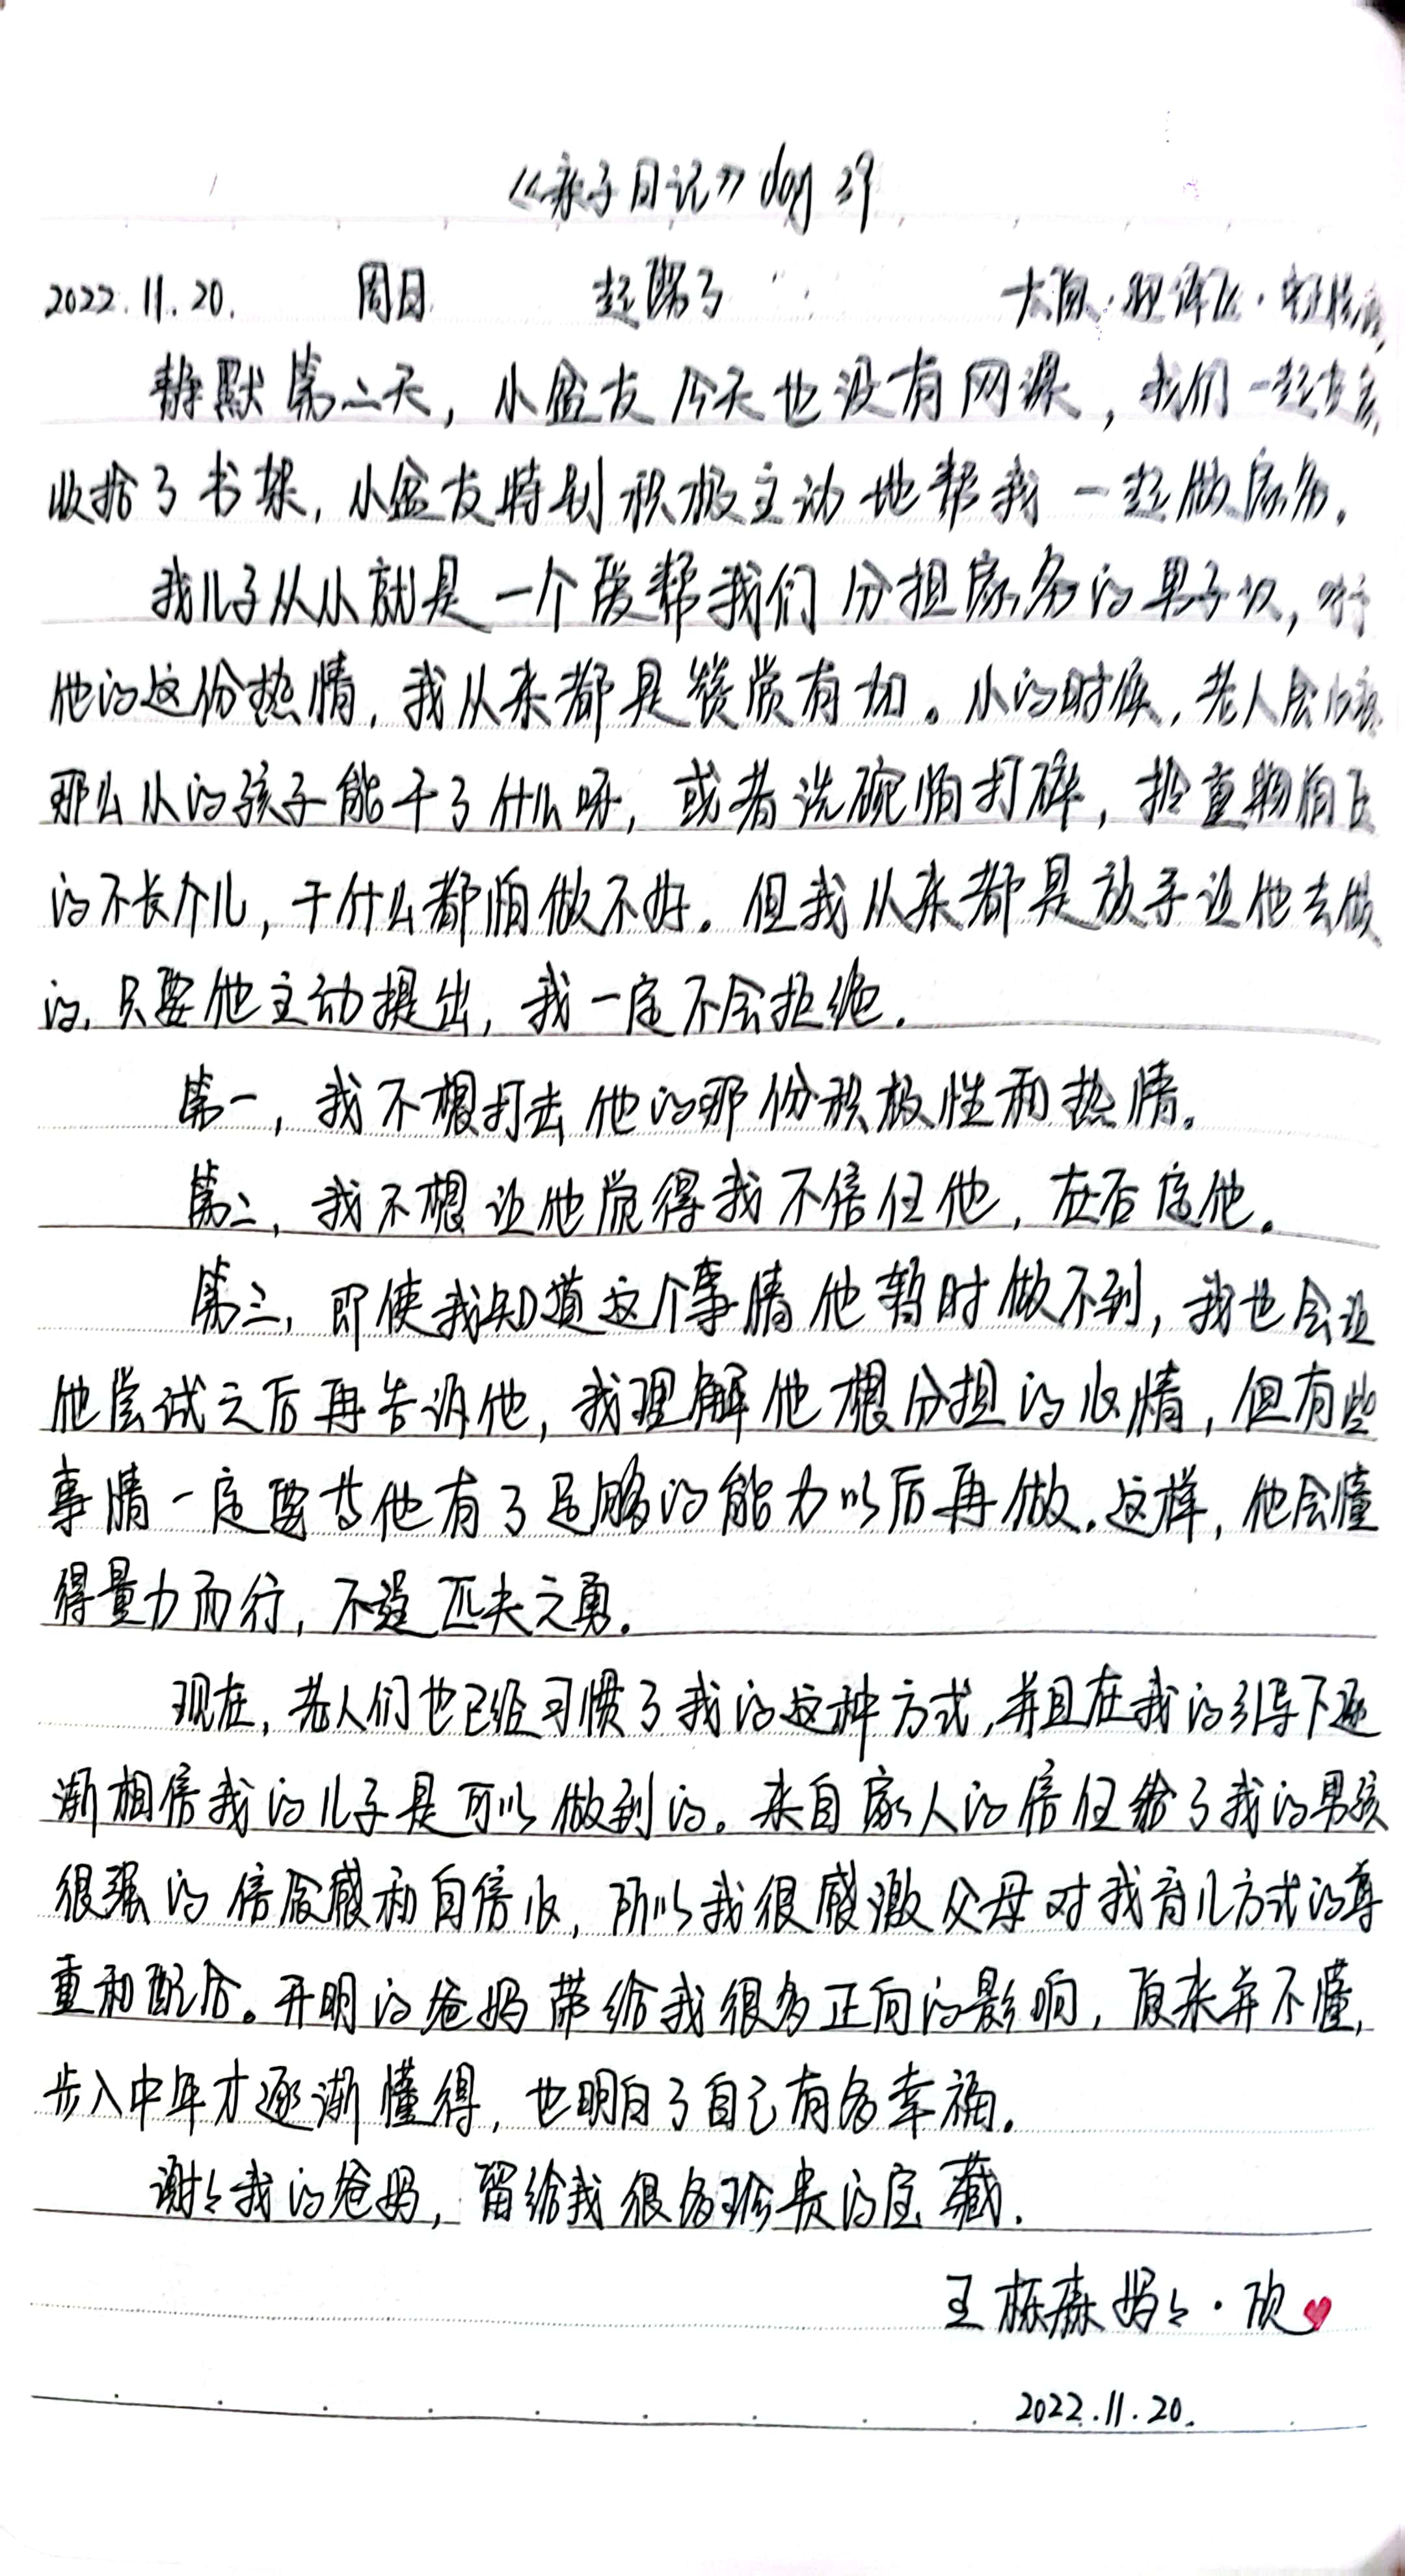 《亲子日记》day 29
2022.11.20. 周日 起隔了 太原·迎泽区·
静默第二天，小盆友今天也没有网课，我们一起
收拾了书架，小盆友特别积极主动地帮我一起做家务。
我儿子从小就是一个爱帮我们分担家务的男子汉，对于
他的这份热情，我从来都是赞赏有加。小的时候，老人会心疼
那么小的孩子能干了什么呀，或者洗碗怕打碎，拎重物怕压
的不长个儿，干什么都怕做不好。但我从来都是放手让他去做
的，只要他主动提出，我一定不会拒绝。
第一，我不想打击他的那份积极性和热情。
第二，我不想让他觉得我不信任他，在否定他。
第三，即使我知道这个事情他暂时做不到，我也会让
他尝试之后再告诉他，我理解他想分担的心情，但有些
事情一定要等他有了足够的能力以后再做。这样，他会懂
得量力而行，不逞匹夫之勇。
现在，老人们也已经习惯了我的这种方式，并且在我的引导下逐
渐相信我的儿子是可以做到的。来自家人的信任给了我的男孩
很强的信念感和自信心，所以我很感激父母对我育儿方式的尊
重和配合。开明的爸妈带给我很多正向的影响，原来并不懂，
步入中年才逐渐懂得，也明白了自己有多幸福。
谢谢我的爸妈，留给我很多珍贵的宝藏。
王栋森妈妈·欣
2022.11.20.